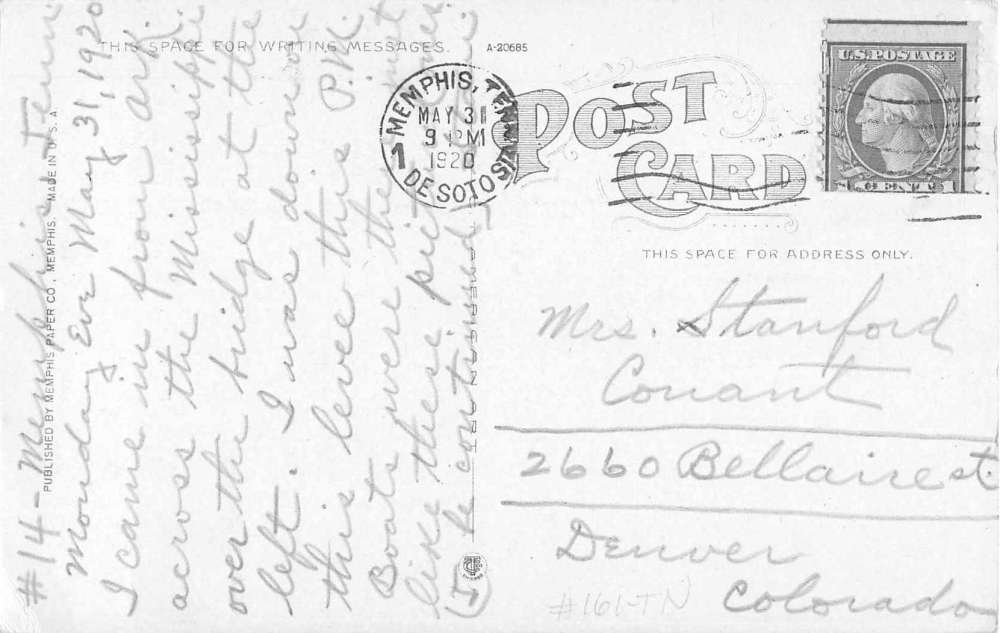 THIS SPACE FOR WRITING MESSAGES.
A-20685
PUBLISHED BY MEMPHIS PAPER CO., MEMPHIS. MADE IN U.S.A.
#14 - Memphis Tenn
Monday Eve May 31, 1920
I came in from Ark
across the Mississippi
over the bridge at the
left. I was down on
this levee this P.M.
Boats were there just
like these
(To be continued)
MEMPHIS, TENN.
MAY 31
9 PM
1920
DE SOTO STA.
1
POST
CARD
U.S. POSTAGE
1 CENT 1
THIS SPACE FOR ADDRESS ONLY.
Mrs. Stanford
Conant
2660 Bellaire st.
Denver
Colorado
#161-TN